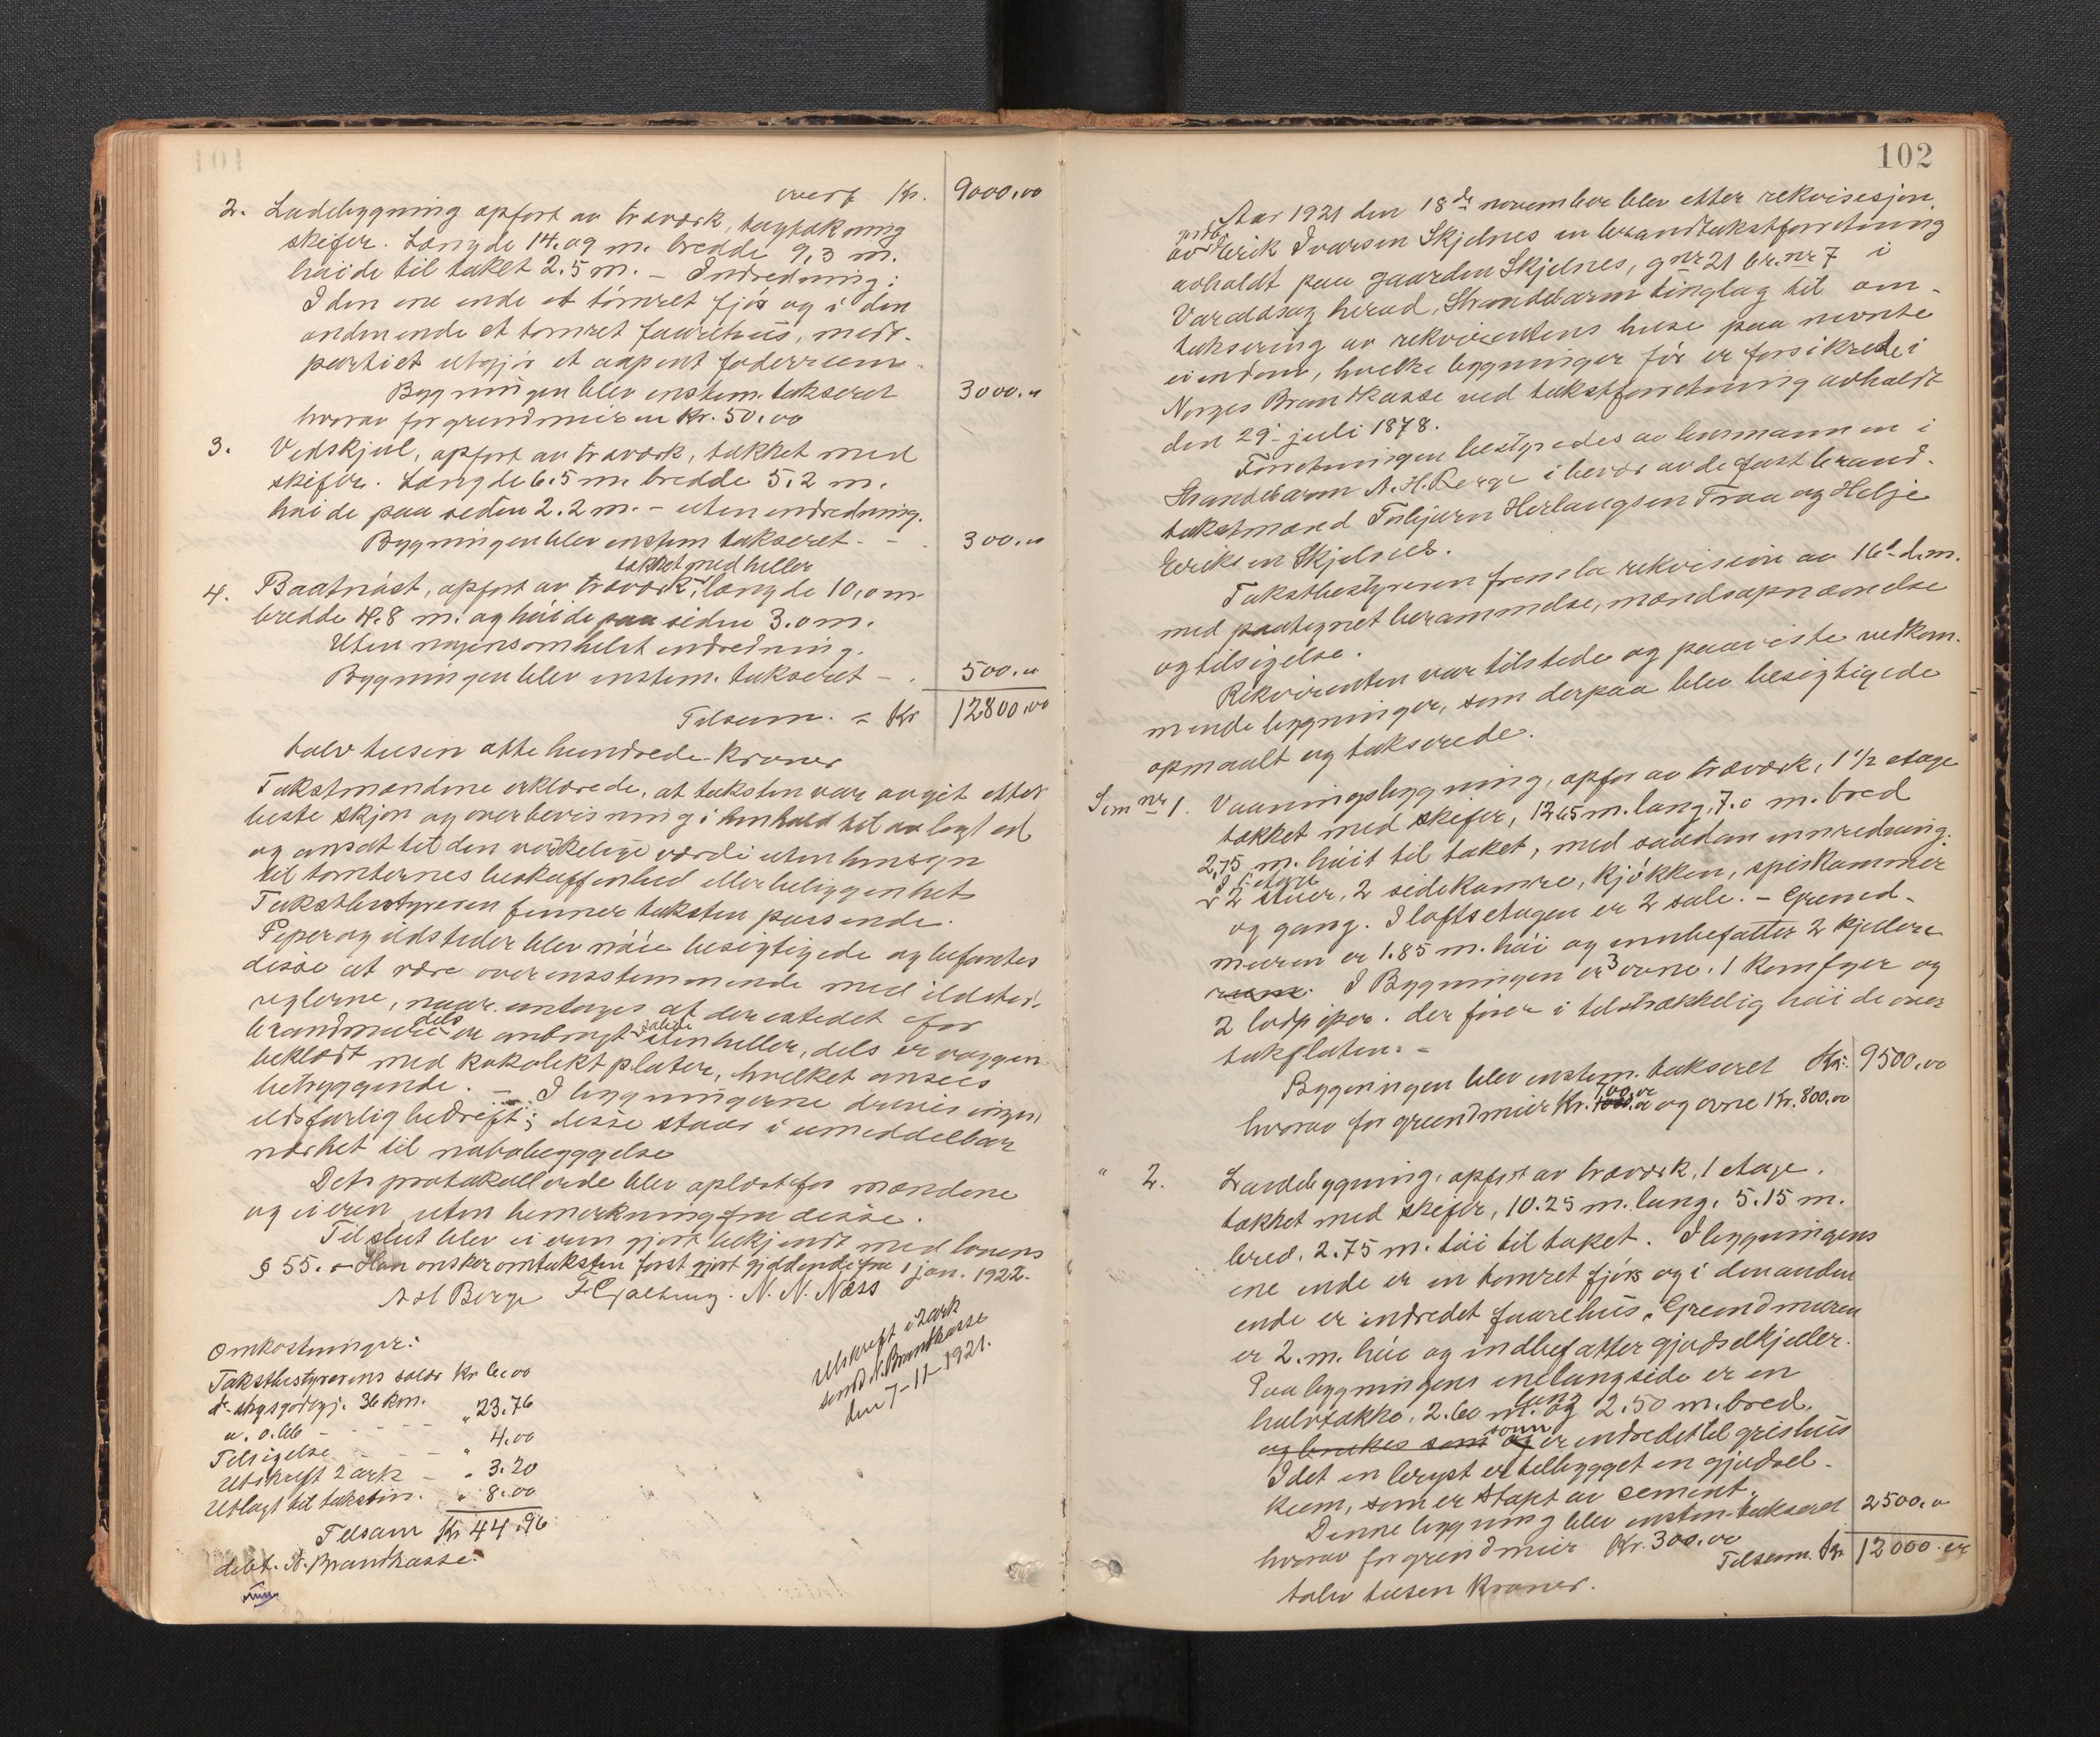 overf Kr. 9000,00
2. Ladebygning opført av træverk, tagtækning
skifer. Længde 14.09 m. bredde 9,3 m.
høide til taket 2.5 m. – Indredning:
I den ene ende et tømret fjøs og i den
anden ende et tømret faarehus, midt-
partiet utgjør et aapent foderrum
Bygningen blev enstem. taksert 3000.„
hvorav for grundmuren Kr. 50.00
3. Vedskjul, opført av træverk, tækket med
skifer. Længde 6.5 m. bredde 5.2 m.
høide paa siden 2.2 m. – uten indredning.
Bygningen blev enstem takseret - - 300.„
tækket med heller
4. Baatnøst, opført av træverk, længde 10,0 m
bredde 4.8 m. og høide paa siden 3.0 m.
Uten nogensomhelst indredning.
Bygningen blev enstem. takseret - . 500.„
Tilsum. = Kr 12800,00
tolv tusen otte hundrede kroner
Takstmændene erklærede, at taksten var avgit efter
beste skjøn og overbevisning i henhold til avlagt ed
og ansat til den virkelige værdi uten hensyn
til tomternes beskaffenhed eller beliggenhet
Takstbestyreren finner taksten passende.
Piper og ildsteder blev nøie besigtigede og befantes
disse at være overensstemmende med ildsted-
reglerne, naar undtages at der istedet for
brandmure dels er anbragt stenheller, dels er væggen
beklædt med kokolektplater, hvilket ansees
betryggende. – I bygningerne drives ingen
ildsfarlig bedreft; disse staar i umeddelbar
nærhet til nabobebyggelse
Det protokollerde blev oplæst for mændene
og eieren uten bemerkning fra disse.
Tilslut blev eieren gjort bekjendt med lovens
§ 55. – Han ønsker omtaksten først gjort gjeldende fra 1 jan. 1922.
A H Berge N. N. Næss
Utskrift i 2 ark
sendt N. Brandkasse
den 7-11-1921.
Omkostninger:
Takstbestyrerens salær Kr 6.00
do skysgodtgj. 36 km.
a. 0.66 - - - „ 23.76
Tilsigelse - - - „ 4.00
Utskrift 2 ark - „ 3.20
Utlagt til taksten. „ 8.00
Tilsam Kr 44.96
debt. N. Brandkasse.
102
Aar 1921 den 18de november blev efter rekvisisjon
av Erik Ivarsen Skjelnes en brandtakstforretning
avholdt paa gaarden Skjelnes, gnr 21 br.nr 7 i
Varaldsøy herad, Strandebarm tinglag til om-
taksering av rekvirentens huse paa nævnte
eiendom, hvilke bygninger før er forsikrede i
Norges Brandkasse ved takstforretning avholdt
den 29. juli 1878.
Forretningen bestyredes av lensmannen i
Strandebarm A. H. Berge i bevær av de fast brand-
takstmænd Torbjørn Herlaugsen Traa og Helje
Eriksen Skjelnes.
Takstbestyreren fremla rekvision av 16d d.m.
med paategnet berammelse, mandsopnævnelse
og tilsigelse.
Rekvirenten var tilstede og paaviste vedkom-
mende bygninger, som derpaa blev besigtigede
opmaalt og takserede.
Sem nr 1. Vaaningsbygning, opfør av træverk, 1 1/2 etage
tækket med skifer, 12.65 m. lang, 7.0 m. bred
2,75 m. høit til taket, med saadan innredning:
I 1 etage
2 stuer, 2 sidekamre, kjøkken, spiskammer
og gang. I loftsetagen er 2 sale. – Grund-
muren er 1.85 m. høi og innbefatter 2 kjellere
rum. I Bygningen er 3 ovne, 1 komfyr og
2 lodpiper. der fører i tilstrækkelig høide over
takflaten. –
Bygningen blev enstem. takseret Kr: 9500,00
hvorav for grundmur Kr. 700,00 og ovne Kr. 800.00
„ 2. Laadebygning, opført av træverk, 1 etage.
tækket med skifer, 10.25 m. lang. 5.15 m.
bred. 2.75 m. høi til taket. I bygningens
ene ende er en tømret fjøs og i den anden
ende er indredet faarehus. Grundmuren
er 2. m. høi og indbefatter gjødselkjeller.
Paa bygningens ene langside er en
halvtække, 2.60 m. lang og 2.50 m. bred.
og brukes som som er indredet til grishus
I det en bryst er tilbygget en gjødsel-
kum, som er støpt av cement.
Denne bygning blev enstem. takseret 2500,„
hvorav for grundmur Kr. 300.00
Tilsum. Kr. 12000.„
tolv tusen Kroner.